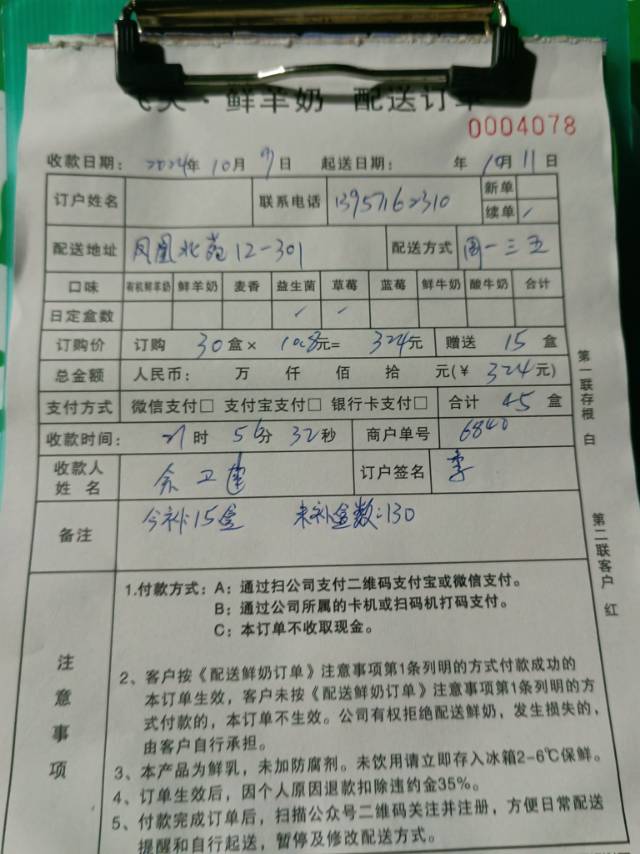 ·鲜羊奶 配送订单
0004078
收款日期: 2024年 10月 9日 起送日期: 年 10月 11日
订户姓名 联系电话 13957162310 新单
续单 ✓
配送地址 凤凰北苑12-301 配送方式 周一三五
口味 有机鲜羊奶 鲜羊奶 麦香 益生菌 草莓 蓝莓 鲜牛奶 酸牛奶 合计
日定盒数 ✓ ✓
订购价 订购 30盒× 10.8元= 324元 赠送 15 盒
总金额 人民币: 万 仟 佰 拾 元(¥ 324元)
支付方式 微信支付□ 支付宝支付□ 银行卡支付□ 合计 45 盒
收款时间: 21时 56分 32秒 商户单号 6840
收款人姓名 余卫建 订户签名 李
备注 今补15盒 未补盒数:130
注意事项
1.付款方式: A: 通过扫公司支付二维码支付宝或微信支付。
B: 通过公司所属的卡机或扫码机打码支付。
C: 本订单不收取现金。
2、客户按《配送鲜奶订单》注意事项第1条列明的方式付款成功的
本订单生效,客户未按《配送鲜奶订单》注意事项第1条列明的方
式付款的,本订单不生效。公司有权拒绝配送鲜奶,发生损失的,
由客户自行承担。
3、本产品为鲜乳,未加防腐剂。未饮用请立即存入冰箱2-6℃保鲜。
4、订单生效后,因个人原因退款扣除违约金35%。
5、付款完成订单后,扫描公众号二维码关注并注册,方便日常配送
提醒和自行起送,暂停及修改配送方式。
第一联存根 白
第二联客户 红